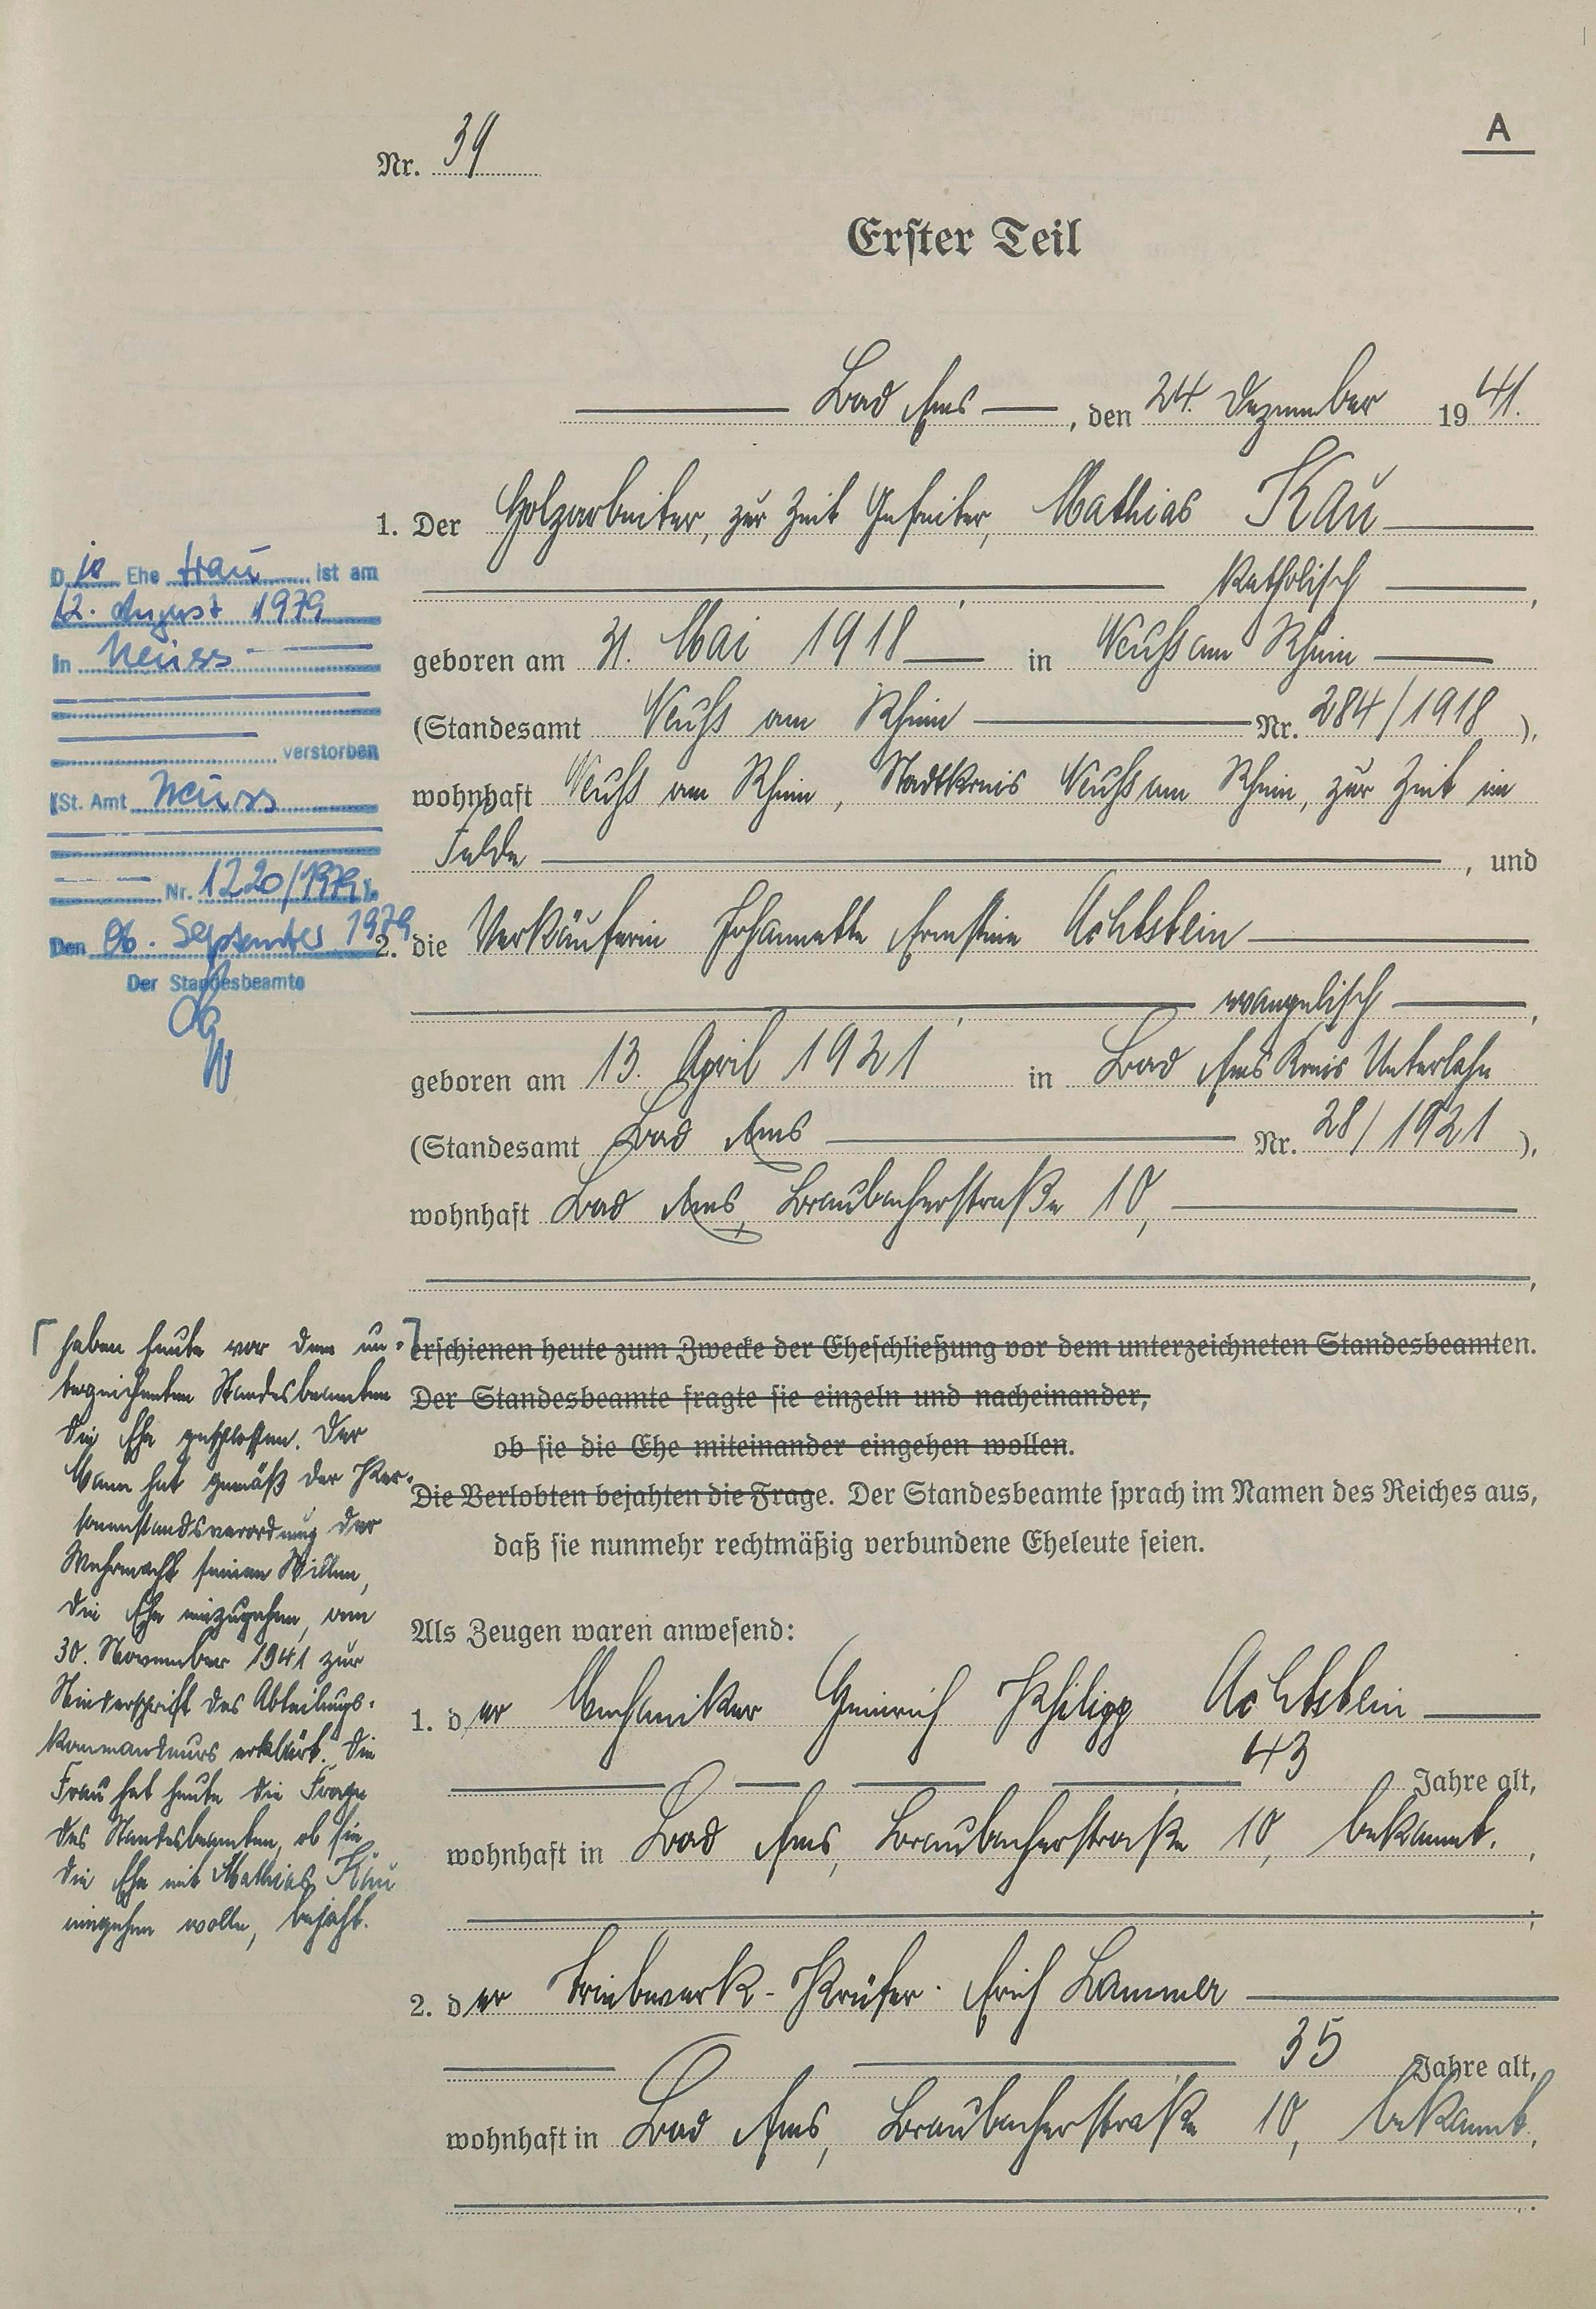 A
Nr. 39
Erster Teil
Bad Ems, den 24. Dezember 1941.
1. Der Holzarbeiter, zur Zeit Gefreiter, Mathias Kau
katholisch,
geboren am 31. Mai 1918 in Neuß am Rhein
(Standesamt Neuß am Rhein Nr. 284/1918),
wohnhaft Neuß am Rhein, Stadtkreis Neuß am Rhein, zur Zeit im
Felde, und
2. die Verkäuferin Johannette Ernstine Achtstein
evangelisch,
geboren am 13. April 1921 in Bad Ems Kreis Unterlahn
(Standesamt Bad Ems Nr. 28/1921),
wohnhaft Bad Ems, Braubacherstraße 10,
erschienen heute zum Zwecke der Eheschließung vor dem unterzeichneten Standesbeamten.
Der Standesbeamte fragte sie einzeln und nacheinander,
ob sie die Ehe miteinander eingehen wollen.
Die Verlobten bejahten die Frage. Der Standesbeamte sprach im Namen des Reiches aus,
daß sie nunmehr rechtmäßig verbundene Eheleute seien.
Als Zeugen waren anwesend:
1. der Mechaniker Heinrich Philipp Achtstein
43 Jahre alt,
wohnhaft in Bad Ems, Braubacherstraße 10, bekannt.,
;
2. der Triebwerk-Prüfer Erich Lammer
35 Jahre alt,
wohnhaft in Bad Ems, Braubacherstraße 10, bekannt.
Die Ehefrau ist am
12. August 1979
in Neuss
verstorben
(St. Amt Neuss
Nr. 1220/1979).
Den 06. September 1979
Der Standesbeamte
haben heute vor dem un-
terzeichneten Standesbeamten
die Ehe geschlossen. Der
Mann hat gemäß der Per-
sonenstandsverordnung der
Wehrmacht seinen Willen,
die Ehe einzugehen, am
30. November 1941 zur
Niederschrift des Abteilungs-
kommandeurs erklärt. Die
Frau hat heute die Frage
des Standesbeamten, ob sie
die Ehe mit Mathias Kau
eingehen wolle, bejaht.